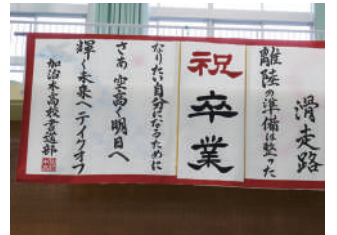 滑走路
離陸の準備は整った
祝
卒業
なりたい自分になるために
さあ 空高く明日へ
輝く未来へテイクオフ
加治木高校書道部